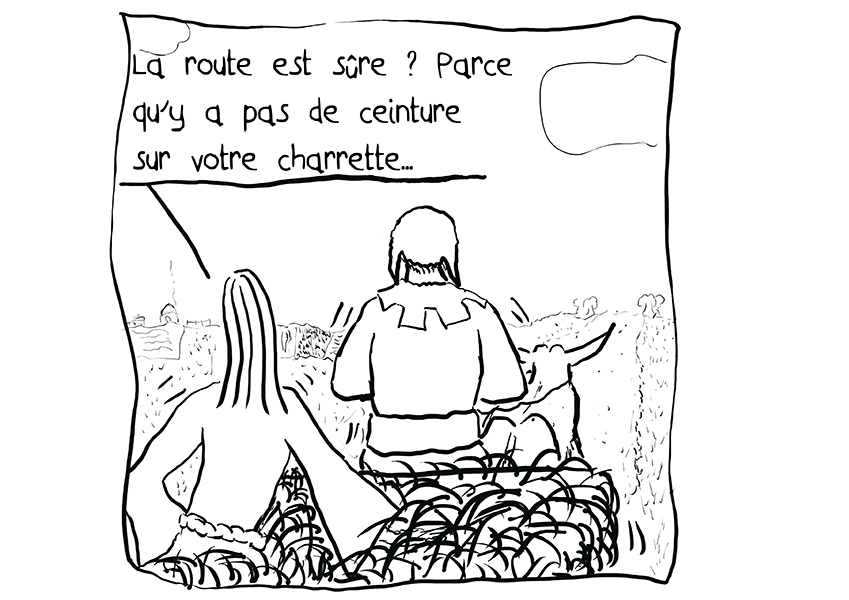 La route est sûre ? Parce
qu'y a pas de ceinture
sur votre charrette...